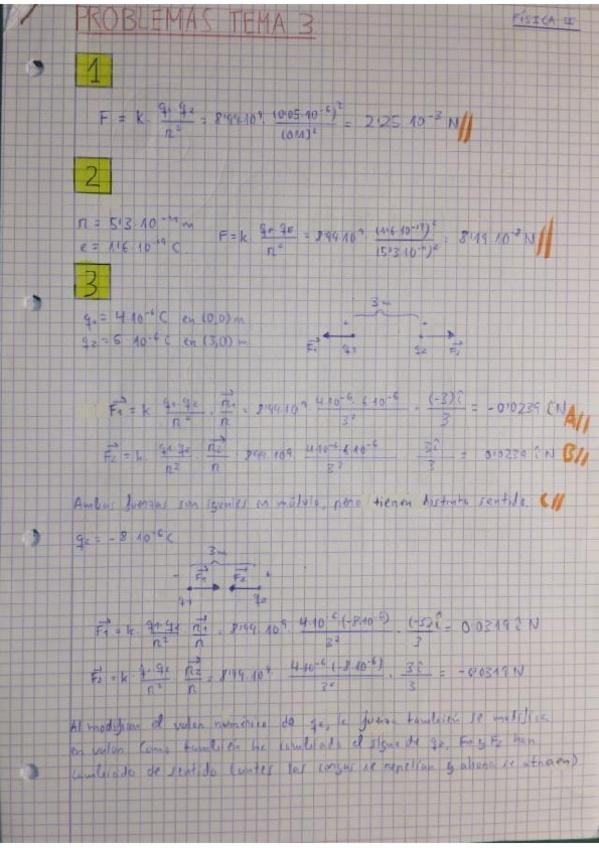 PROBLEMAS TEMA 3
FÍSICA II
1
F = k · q₁·q₂/r² = 8'99·10⁹ · (0'05·10⁻⁶)²/(0'1)² = 2'25·10⁻³ N //
2
r = 5'3·10⁻¹¹ m
e = 1'6·10⁻¹⁹ C
F = k · q₁·q₂/r² = 8'99·10⁹ · (1'6·10⁻¹⁹)²/(5'3·10⁻¹¹)² = 8'19·10⁻⁸ N //
3
q₁ = 4·10⁻⁶ C en (0,0) m
q₂ = 6·10⁻⁶ C en (3,0) m
3 m
F₁ q₁ q₂ F₂
F₁ = k · q₁·q₂/r² · r₁/r = 8'99·10⁹ · 4·10⁻⁶·6·10⁻⁶/3² · (-3)î/3 = -0'0239 î N A//
F₂ = k · q₁·q₂/r² · r₂/r = 8'99·10⁹ · 4·10⁻⁶·6·10⁻⁶/3² · 3î/3 = 0'0239 î N B//
Ambas fuerzas son iguales en módulo, pero tienen distinto sentido. C//
q₂ = -8·10⁻⁶ C
3 m
- F₁ F₂ +
q₁ q₂
F₁ = k · q₁·q₂/r² · r₁/r = 8'99·10⁹ · 4·10⁻⁶·(-8·10⁻⁶)/3² · (-3)î/3 = 0'0319 î N
F₂ = k · q₁·q₂/r² · r₂/r = 8'99·10⁹ · 4·10⁻⁶·(-8·10⁻⁶)/3² · 3î/3 = -0'0319 N
Al modificar el valor numérico de q₂, la fuerza también se modifica
en valor. Como también ha cambiado el signo de q₂, F₁ y F₂ han
cambiado de sentido (antes las cargas se repelían y ahora se atraen)